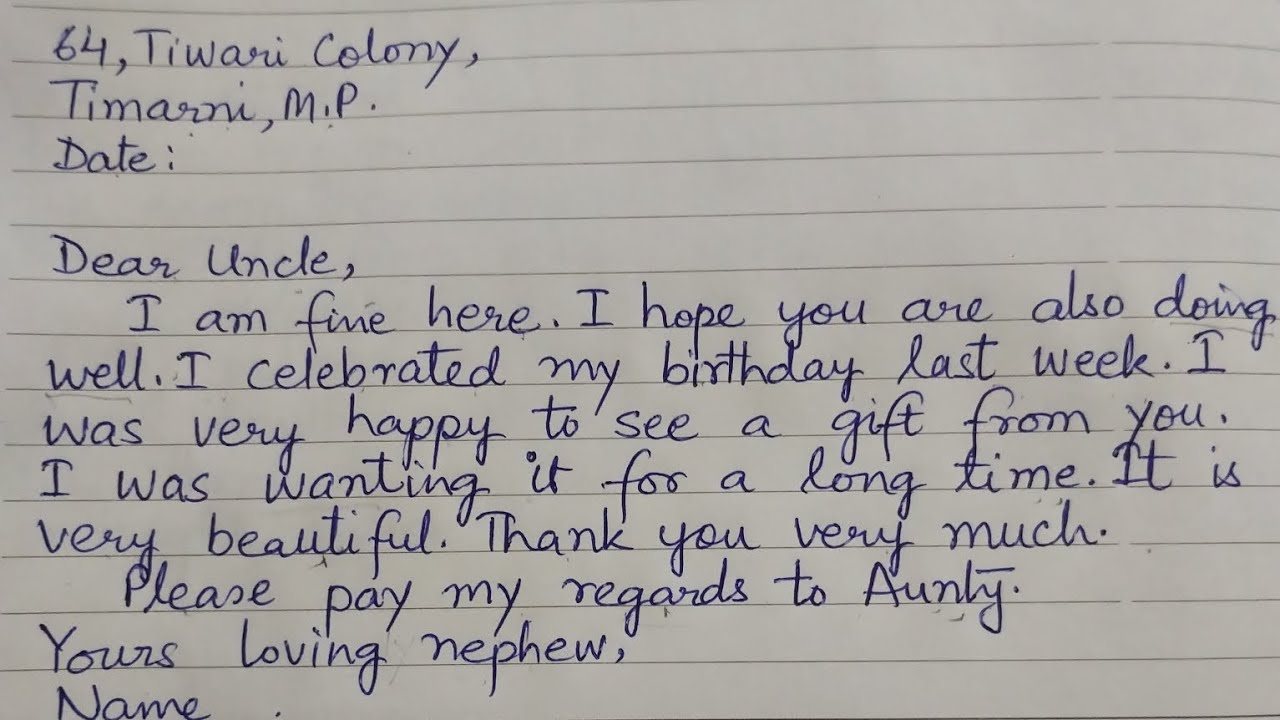 64, Tiwari Colony,
Timarni, M.P.
Date:
Dear Uncle,
I am fine here. I hope you are also doing
well. I celebrated my birthday last week. I
was very happy to see a gift from you.
I was wanting it for a long time. It is
very beautiful. Thank you very much.
Please pay my regards to Aunty.
Yours loving nephew,
Name .